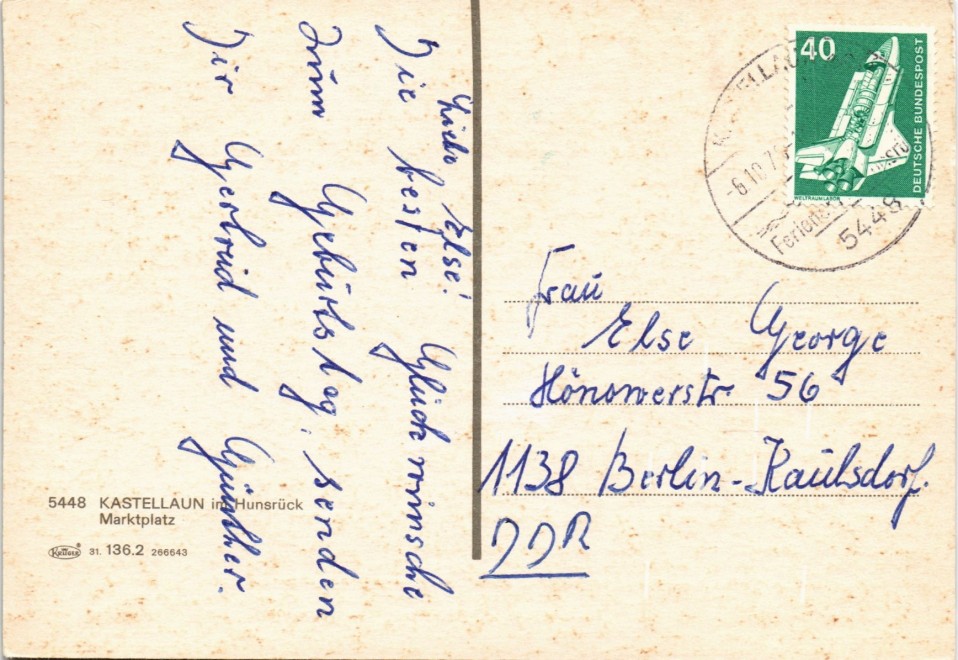 Liebe Else!
Die besten Glückwünsche
zum Geburtstag, senden
Dir Gertrud und Günther.
5448 KASTELLAUN im Hunsrück
Marktplatz
Krüger
31. 136.2 266643
40
DEUTSCHE BUNDESPOST
WELTRAUMLABOR
-6.10.7
5448
Frau
Else George
Hönowerstr 56
1138 Berlin-Kaulsdorf.
DDR